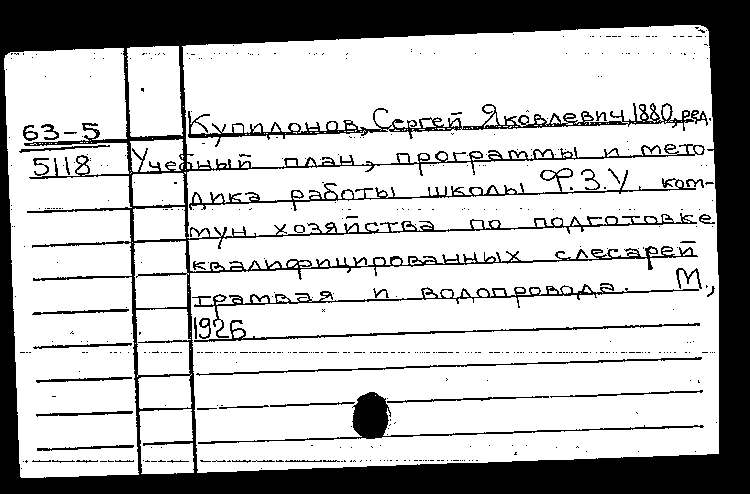 63-5
Купидонов, Сергей Яковлевич, 1880, ред.
5118
Учебный план, программы и мето-
дика работы школы Ф.З.У. ком-
мун. хозяйства по подготовке
квалифицированных слесарей
трамвая и водопровода. М.,
1926.